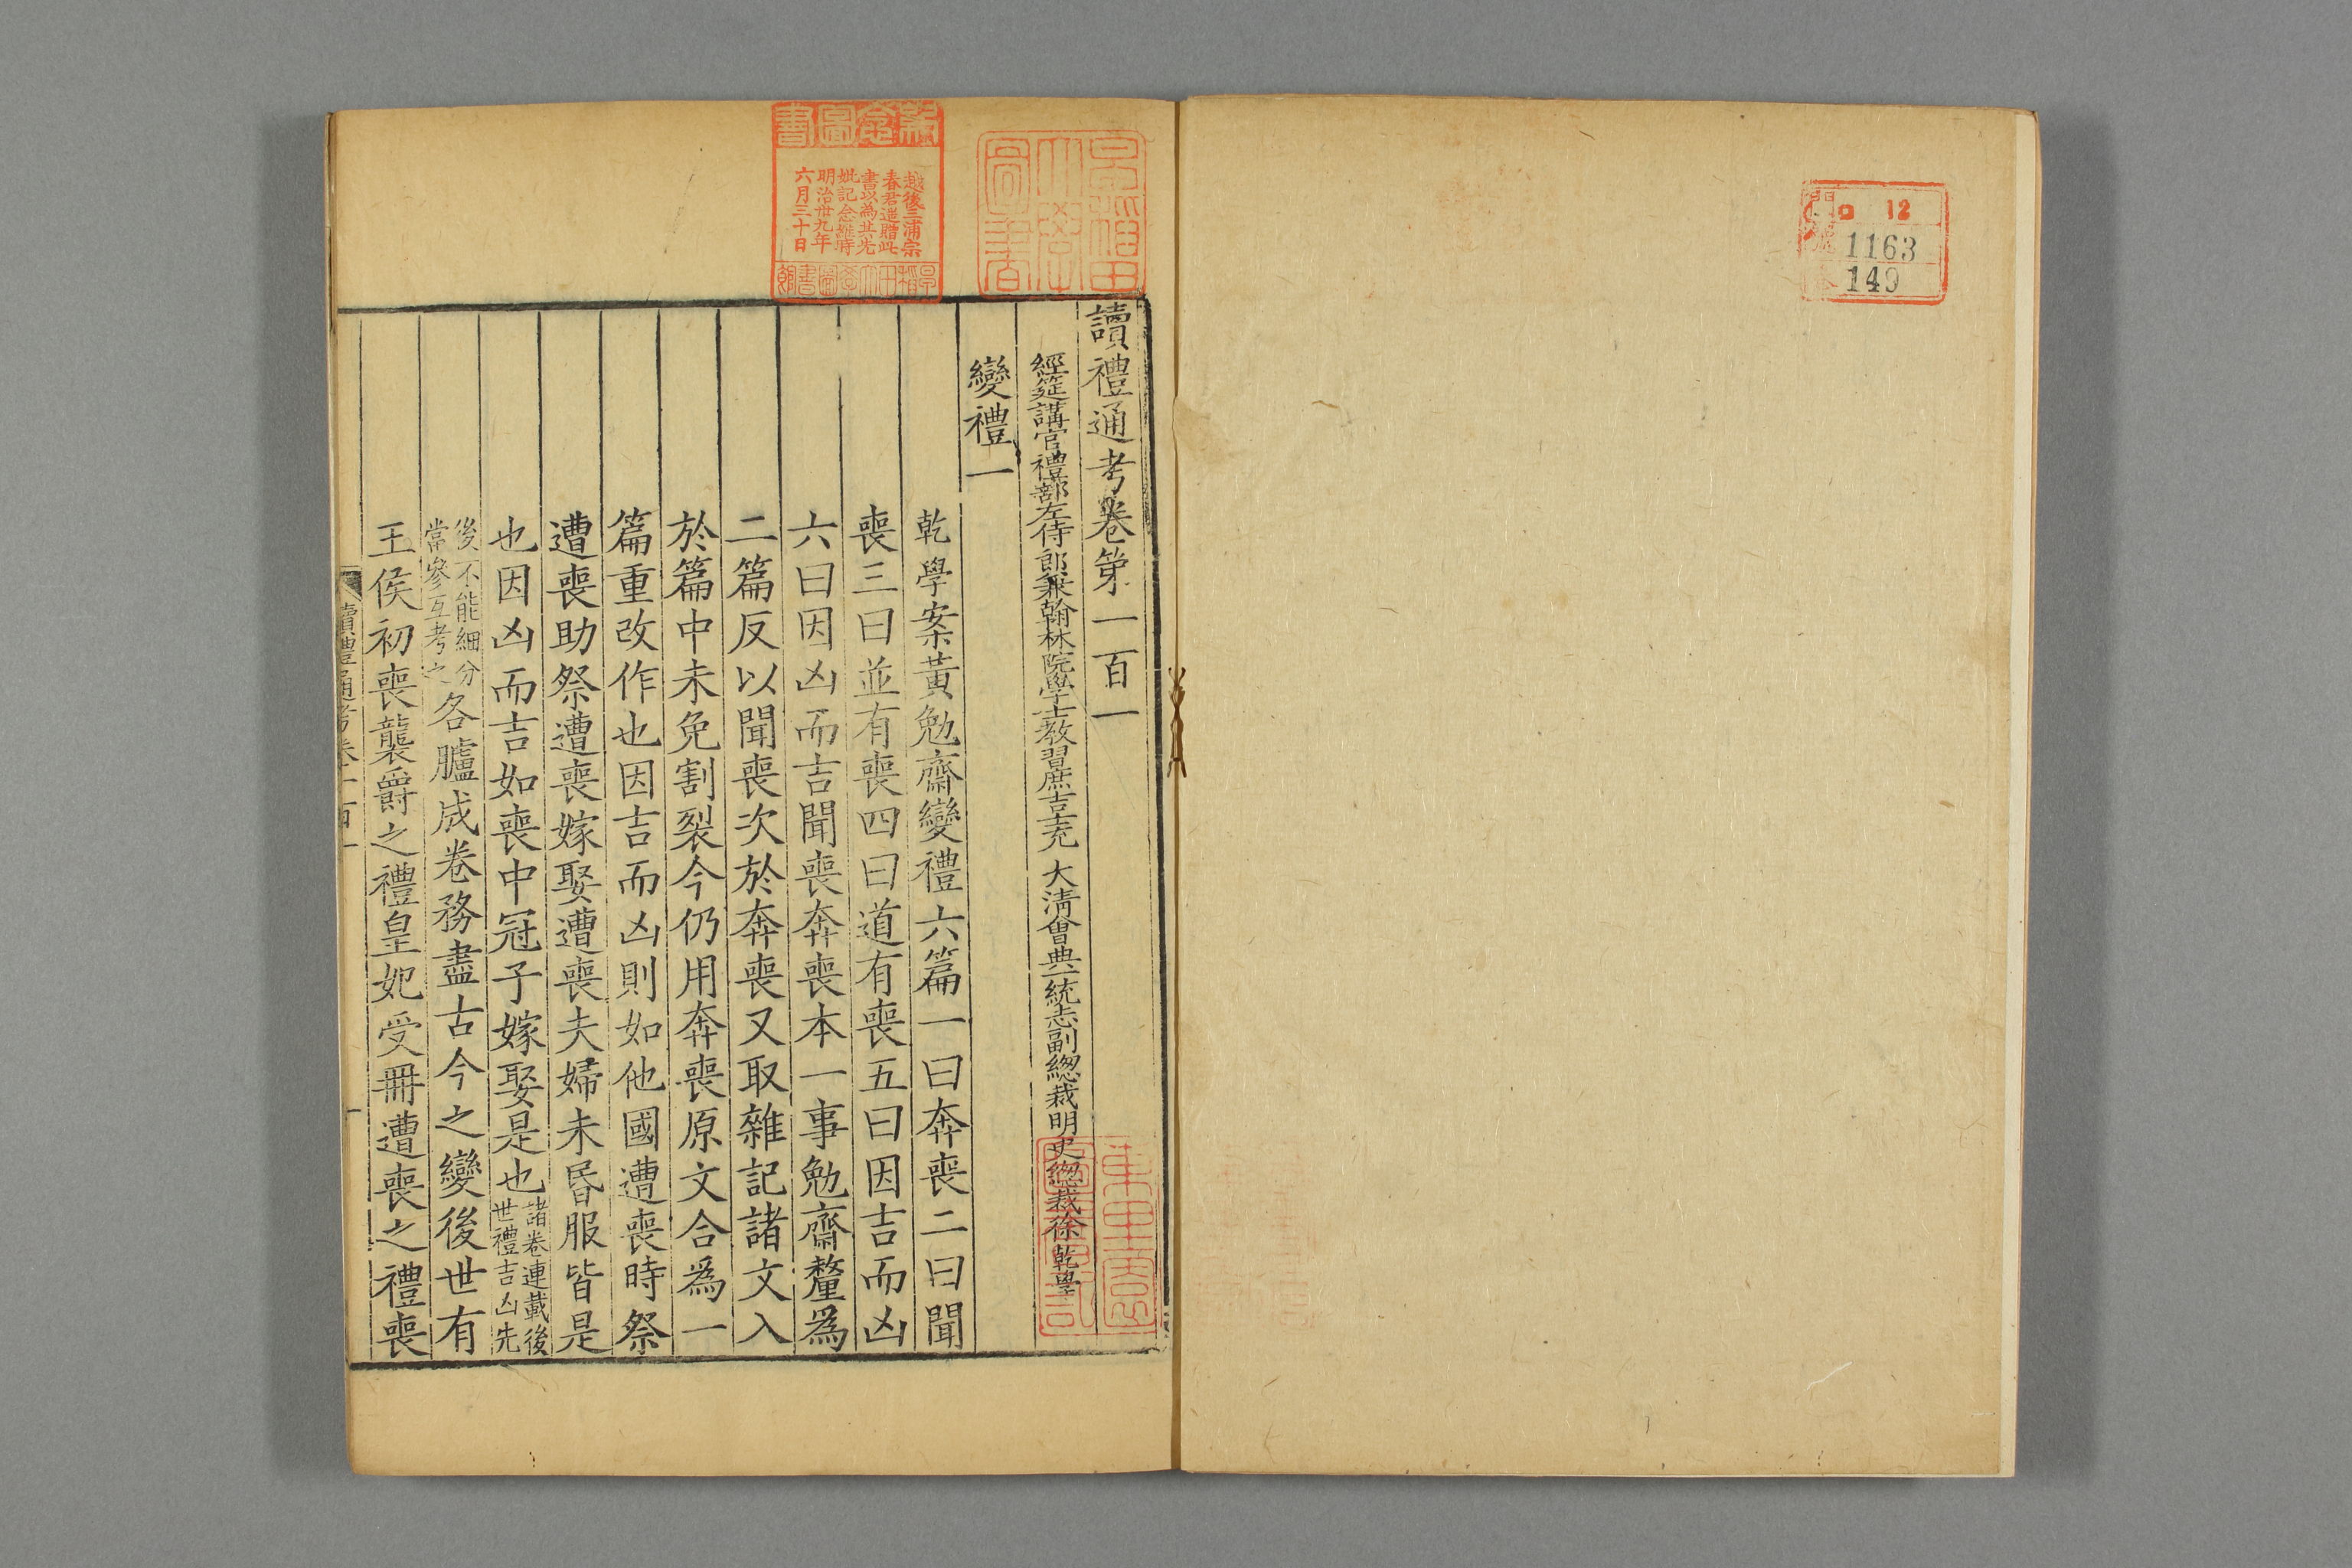 ロ 12
1163
149
讀禮通考卷第一百一
經筵講官禮部左侍郎兼翰林院學士教習庶吉士充 大清會典一統志副總裁明史總裁徐乾學
變禮一
乾學案黃勉齋變禮六篇一曰奔喪二曰聞
喪三曰並有喪四曰道有喪五曰因吉而凶
六曰因凶而吉聞喪奔喪本一事勉齋釐爲
二篇反以聞喪次於奔喪又取雜記諸文入
於篇中未免割裂今仍用奔喪原文合爲一
篇重改作也因吉而凶則如他國遭喪時祭
遭喪助祭遭喪嫁娶遭喪夫婦未昏服皆是
也因凶而吉如喪中冠子嫁娶是也諸卷連載後世禮吉凶先
後不能細分當參互考之各臚成卷務盡古今之變後世有
王侯初喪襲爵之禮皇妃受冊遭喪之禮喪
讀禮通考卷一百一
一
早稲田大學圖書
紀念圖書
越後三浦宗
春君遥贈此
書以為其先
妣記念維時
明治卅九年
六月三十日
早稲田大學圖書館